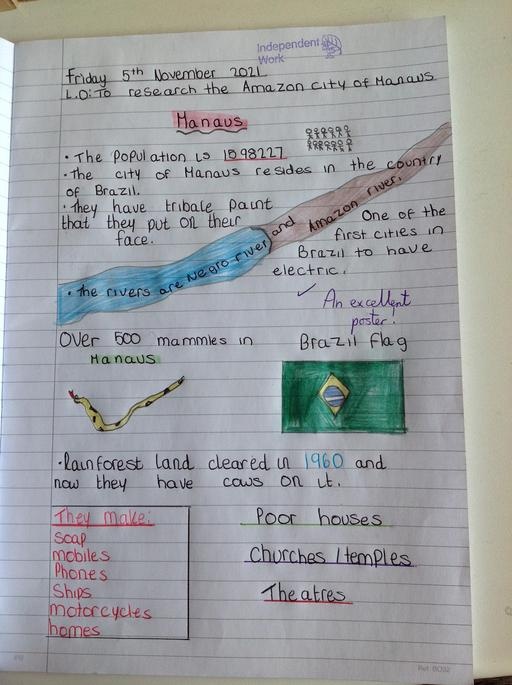 Independent
Work
Friday 5th November 2021
L.O: To research the Amazon city of Manaus
Manaus
• The population is 1098227
• The city of Manaus resides in the country
of Brazil.
• They have tribale paint
that they put on their
face.
• The rivers are Negro river and Amazon river.
One of the
first cities in
Brazil to have
electric.
✓
An excellent
poster.
Over 500 mammles in
Manaus
Brazil flag
• Rainforest land cleared in 1960 and
now they have cows on it.
They make:
soap
mobiles
Phones
Ships
motorcycles
homes
Poor houses
Churches / temples
Theatres